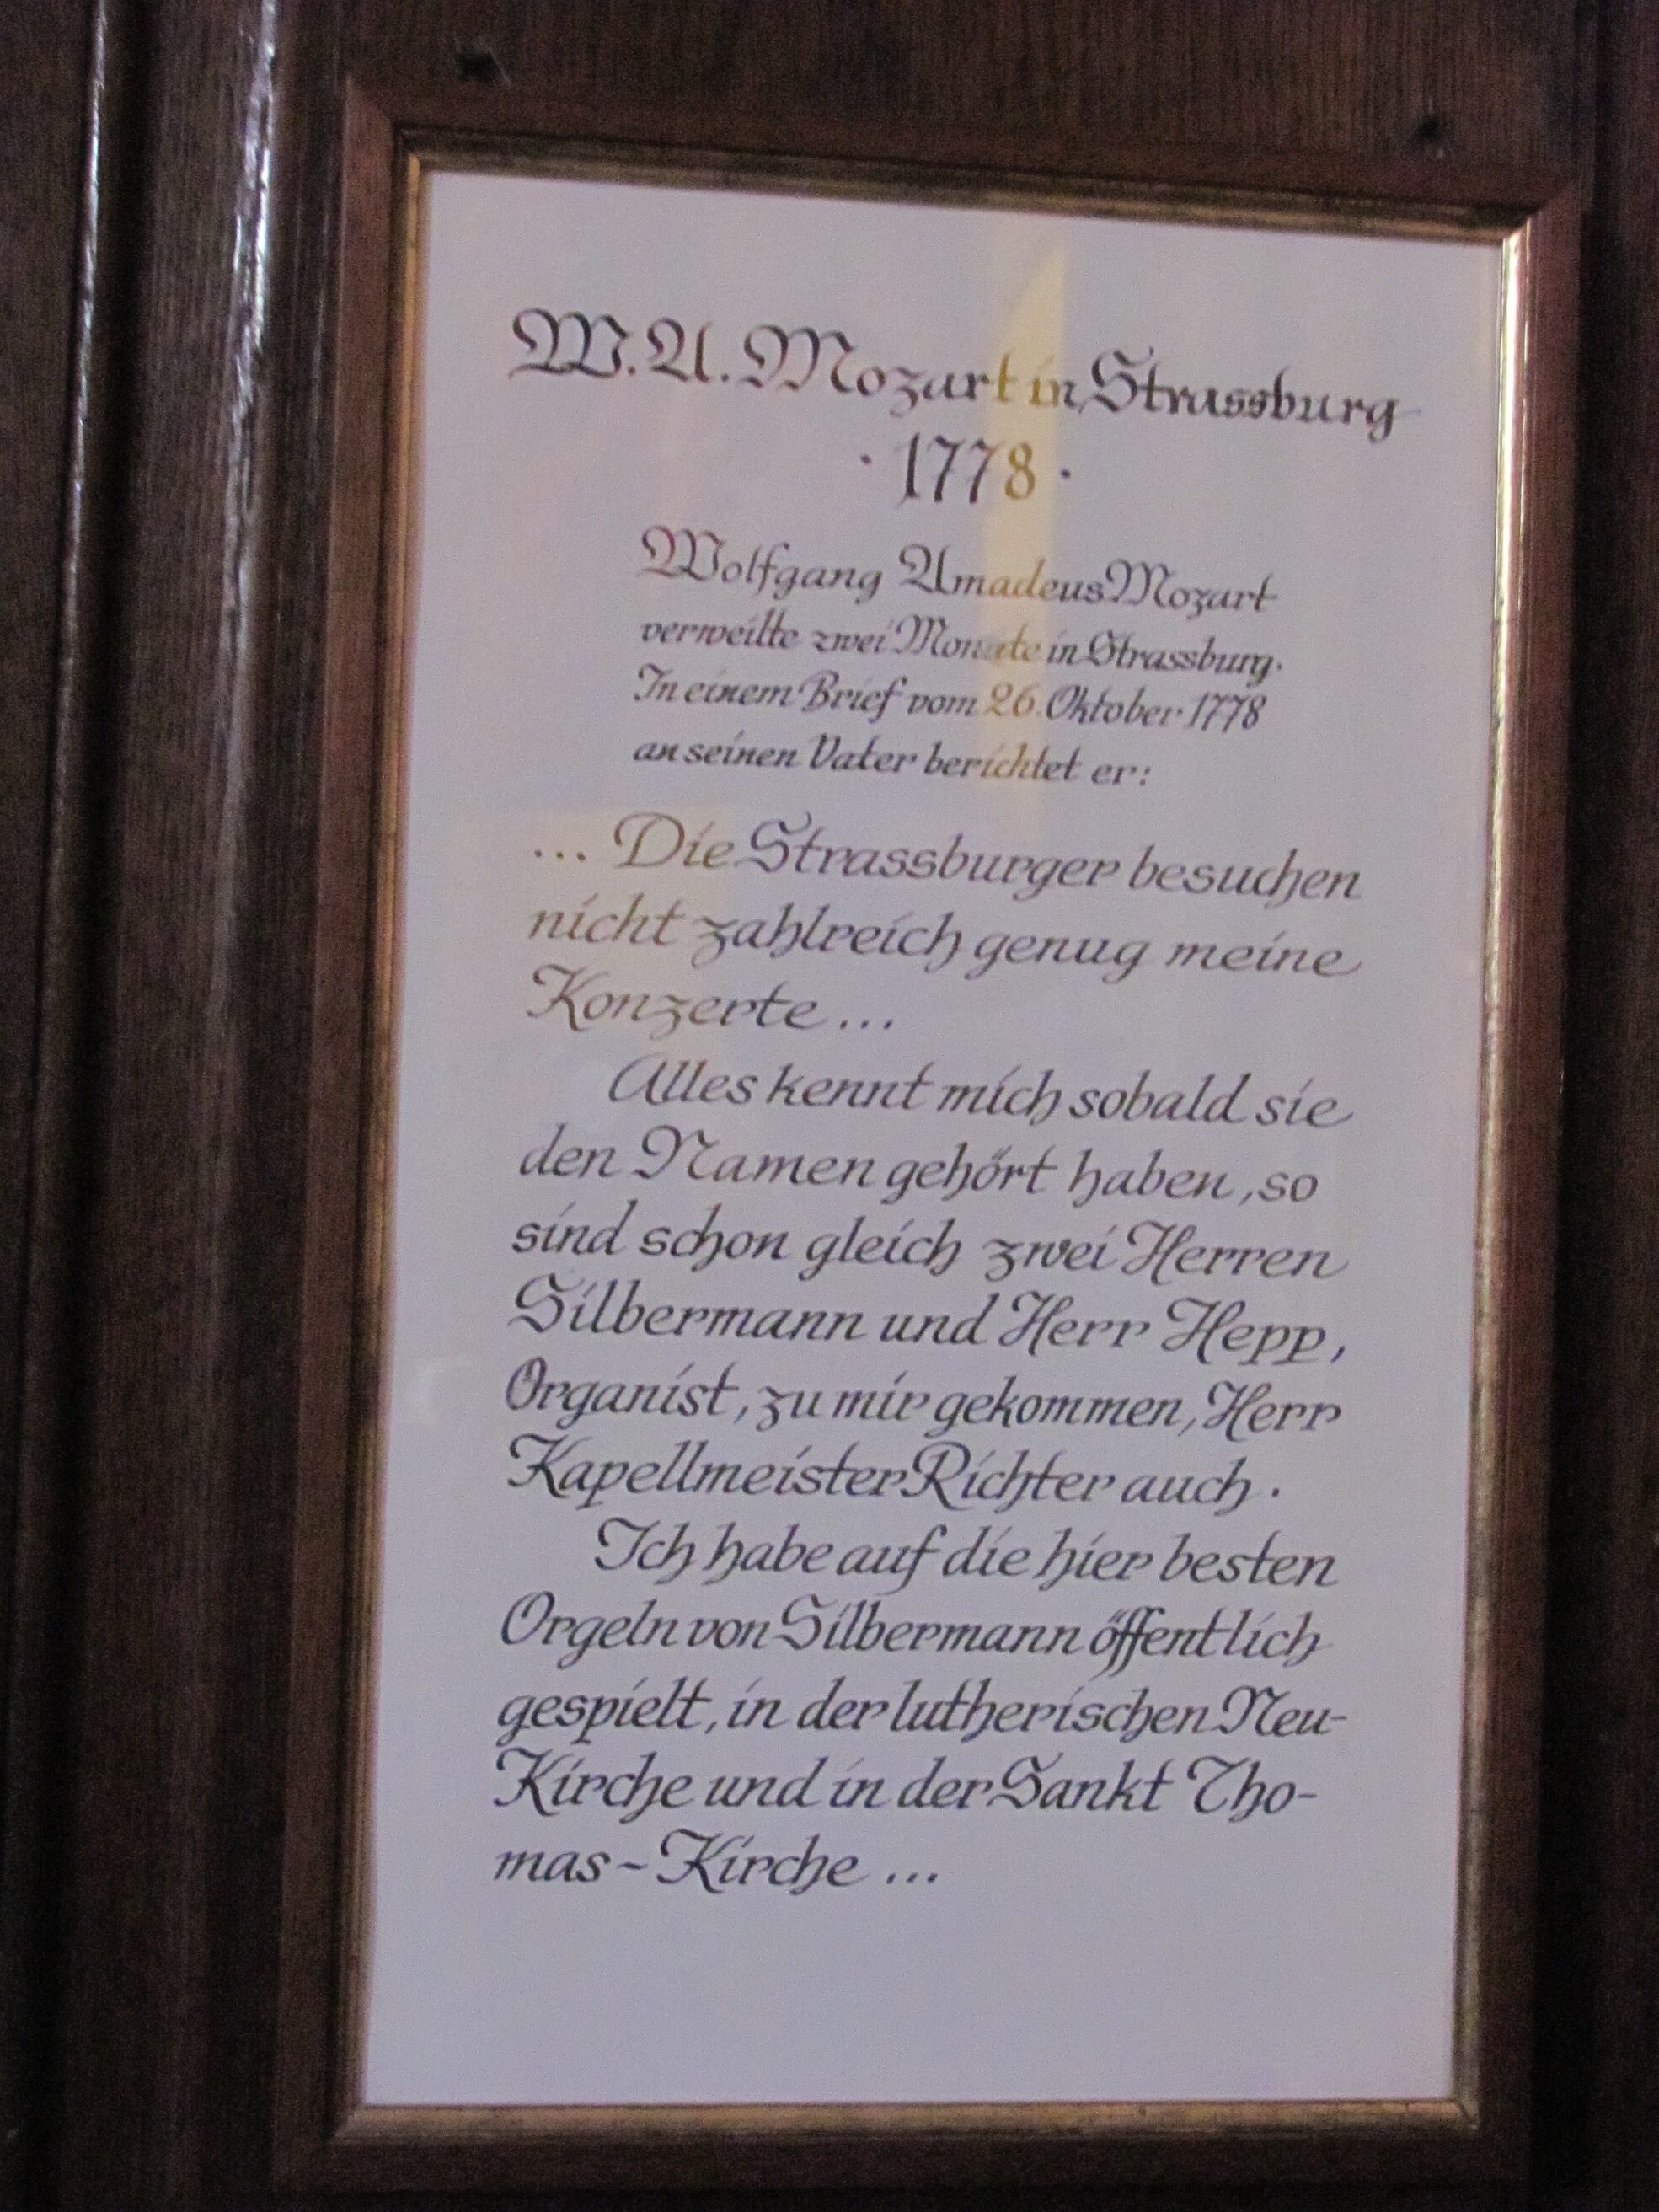 W. A. Mozart in Strassburg
· 1778 ·
Wolfgang Amadeus Mozart
verweilte zwei Monate in Strassburg.
In einem Brief vom 26. Oktober 1778
an seinen Vater berichtet er:
... Die Strassburger besuchen
nicht zahlreich genug meine
Konzerte ...
Alles kennt mich sobald sie
den Namen gehört haben, so
sind schon gleich zwei Herren
Silbermann und Herr Hepp,
Organist, zu mir gekommen, Herr
Kapellmeister Richter auch.
Ich habe auf die hier besten
Orgeln von Silbermann öffentlich
gespielt, in der lutherischen Neu-
Kirche und in der Sankt Tho-
mas-Kirche ...